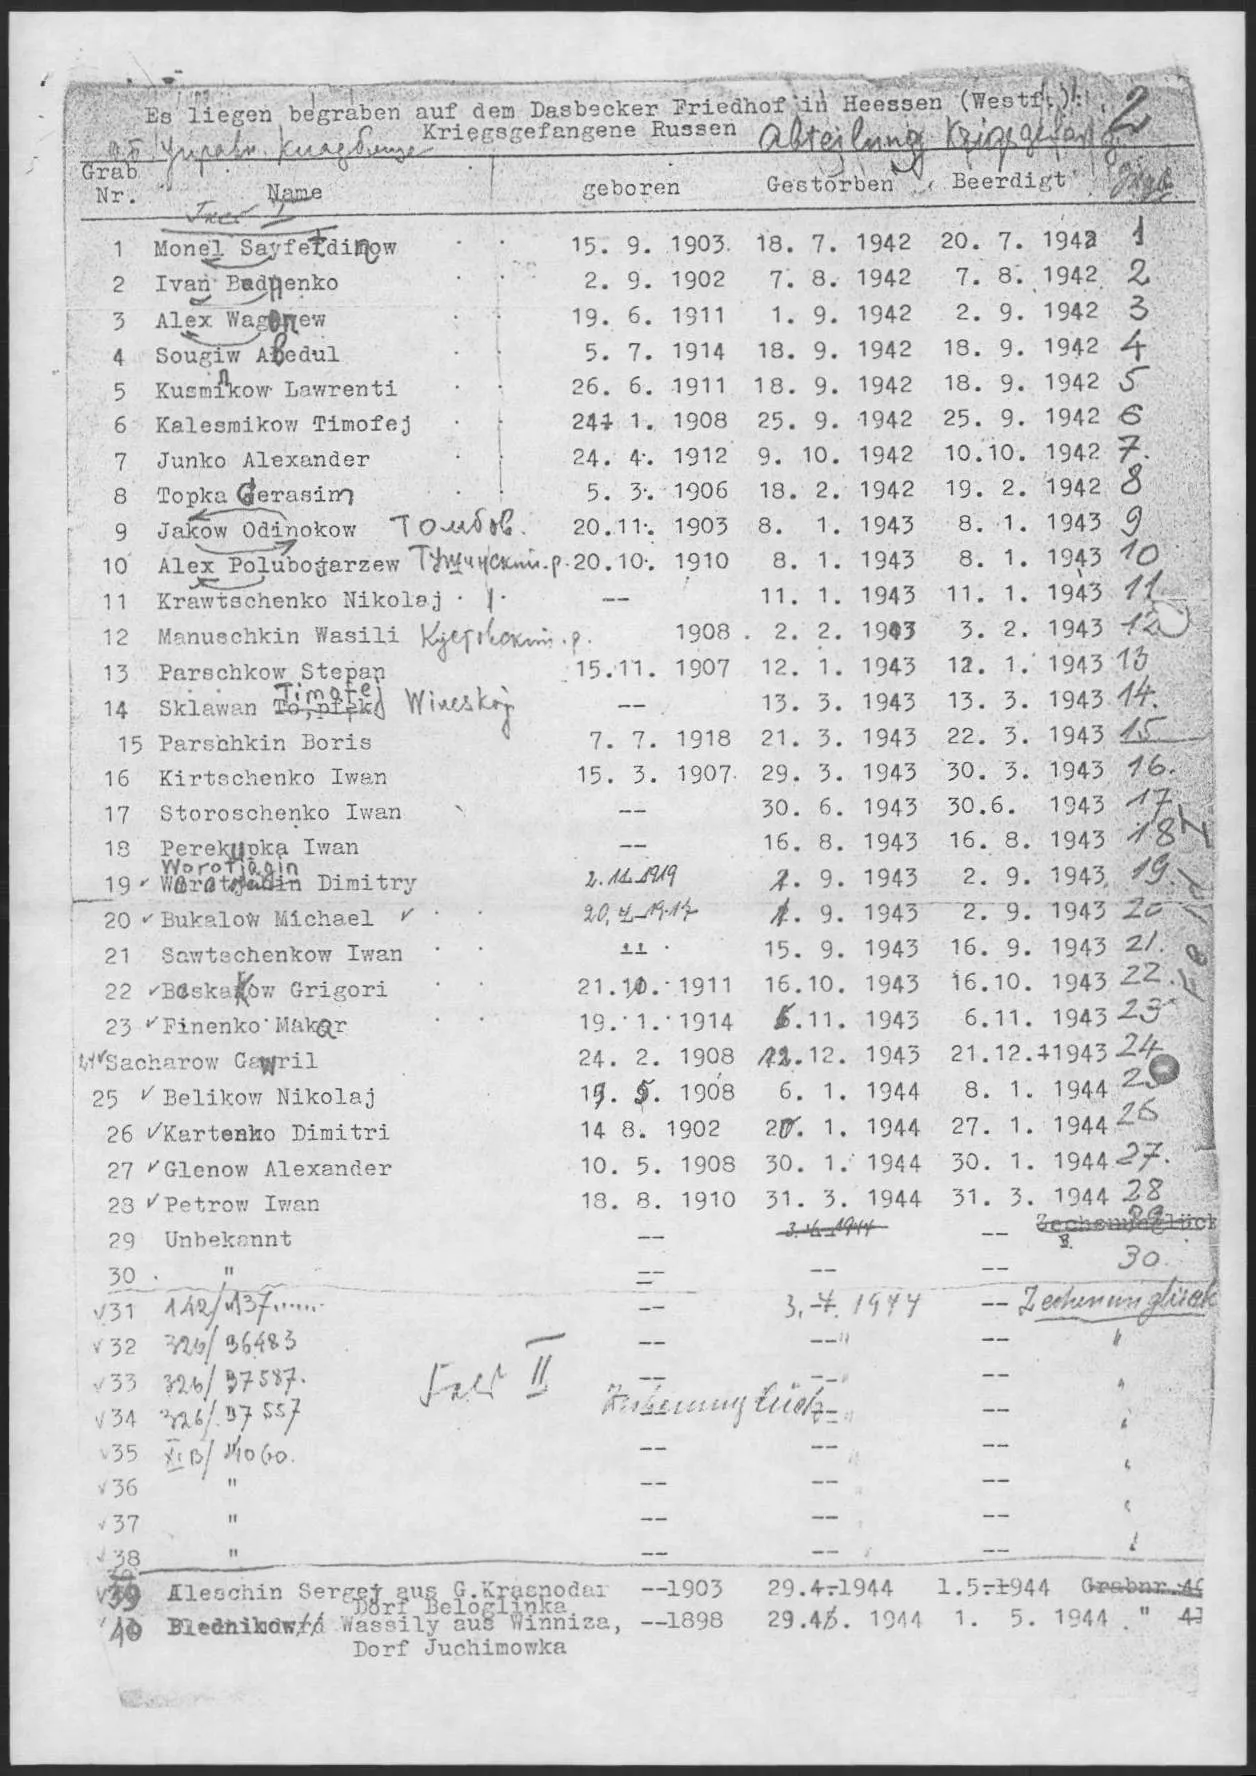 Es liegen begraben auf dem Dasbecker Friedhof in Heessen (Westf.): 2
Kriegsgefangene Russen Abteilung
Grab Nr. Name geboren Gestorben Beerdigt
1 Monel Sayfetdinow 15. 9. 1903 18. 7. 1942 20. 7. 1942 1
2 Ivan Badnenko 2. 9. 1902 7. 8. 1942 7. 8. 1942 2
3 Alex Wagonew 19. 6. 1911 1. 9. 1942 2. 9. 1942 3
4 Sougiw Abedul 5. 7. 1914 18. 9. 1942 18. 9. 1942 4
5 Kusminkow Lawrenti 26. 6. 1911 18. 9. 1942 18. 9. 1942 5
6 Kalesmikow Timofej 24. 1. 1908 25. 9. 1942 25. 9. 1942 6
7 Junko Alexander 24. 4. 1912 9. 10. 1942 10.10. 1942 7.
8 Topka Gerasim 5. 3. 1906 18. 2. 1942 19. 2. 1942 8
9 Jakow Odinokow 20.11. 1903 8. 1. 1943 8. 1. 1943 9
10 Alex Polubojarzew Тушинский.р. 20.10. 1910 8. 1. 1943 8. 1. 1943 10
11 Krawtschenko Nikolaj -- 11. 1. 1943 11. 1. 1943 11
12 Manuschkin Wasili 1908 2. 2. 1943 3. 2. 1943 12
13 Parschkow Stepan 15.11. 1907 12. 1. 1943 12. 1. 1943 13
Timofej
14 Sklawan -- 13. 3. 1943 13. 3. 1943 14.
15 Parschkin Boris 7. 7. 1918 21. 3. 1943 22. 3. 1943 15
16 Kirtschenko Iwan 15. 3. 1907 29. 3. 1943 30. 3. 1943 16.
17 Storoschenko Iwan -- 30. 6. 1943 30.6. 1943 17
18 Perekupka Iwan -- 16. 8. 1943 16. 8. 1943 18
Worotjagin
19 Dimitry 2.11.1919 1. 9. 1943 2. 9. 1943 19.
20 Bukalow Michael 1. 9. 1943 2. 9. 1943 20
21 Sawtschenkow Iwan -- 15. 9. 1943 16. 9. 1943 21.
22 Baskakow Grigori 21.10. 1911 16.10. 1943 16.10. 1943 22.
23 Finenko Makar 19. 1. 1914 6.11. 1943 6.11. 1943 23
24 Sacharow Gawril 24. 2. 1908 12. 1943 21.12. 1943 24
25 Belikow Nikolaj 19. 5. 1908 6. 1. 1944 8. 1. 1944 25
26 Kartenko Dimitri 14 8. 1902 1. 1944 27. 1. 1944 26
27 Glenow Alexander 10. 5. 1908 30. 1. 1944 30. 1. 1944 27.
28 Petrow Iwan 18. 8. 1910 31. 3. 1944 31. 3. 1944 28
29 Unbekannt -- 3.4.1944 -- Zechenunglück 29
30 " -- -- -- 30.
31 142/ 137...... -- 3.4.1944 -- Zechenunglück
32 326/ 96483 -- --" -- "
33 326/ 97587. -- -- -- "
34 326/ 97557 Feld II Zechenunglück -- -- "
35 XI B/ -- -- -- "
36 " -- -- -- "
37 " -- -- -- "
38 " -- -- -- "
39 Aleschin Sergej aus G.Krasnodar --1903 29.4.1944 1.5.1944 Grabnr.
Dorf Beloglinka
40 Blednikow Wassily aus Winniza, --1898 29.4. 1944 1. 5. 1944 "
Dorf Juchimowka